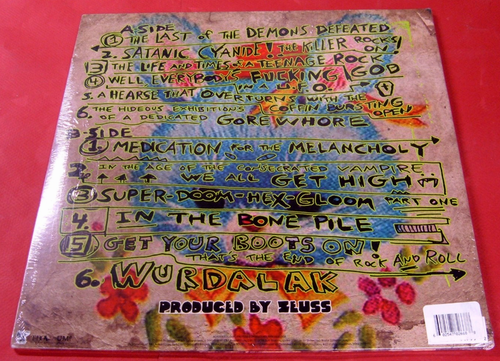 A-SIDE
① THE LAST OF THE DEMONS DEFEATED
2. SATANIC CYANIDE! THE KILLER ROCKS ON!
③ THE LIFE AND TIMES OF A TEENAGE ROCK GOD
④ WELL, EVERYBODY'S FUCKING IN A U.F.O.
5. A HEARSE THAT OVERTURNS WITH THE COFFIN BURSTING OPEN
6. THE HIDEOUS EXHIBITIONS OF A DEDICATED GORE WHORE
B-SIDE
① MEDICATION FOR THE MELANCHOLY
2. IN THE AGE OF THE CONSECRATED VAMPIRE
WE ALL GET HIGH
③ SUPER-DOOM-HEX-GLOOM PART ONE
4. IN THE BONE PILE
⑤ GET YOUR BOOTS ON!
THAT'S THE END OF ROCK AND ROLL
6. WURDALAK
PRODUCED BY ZEUSS